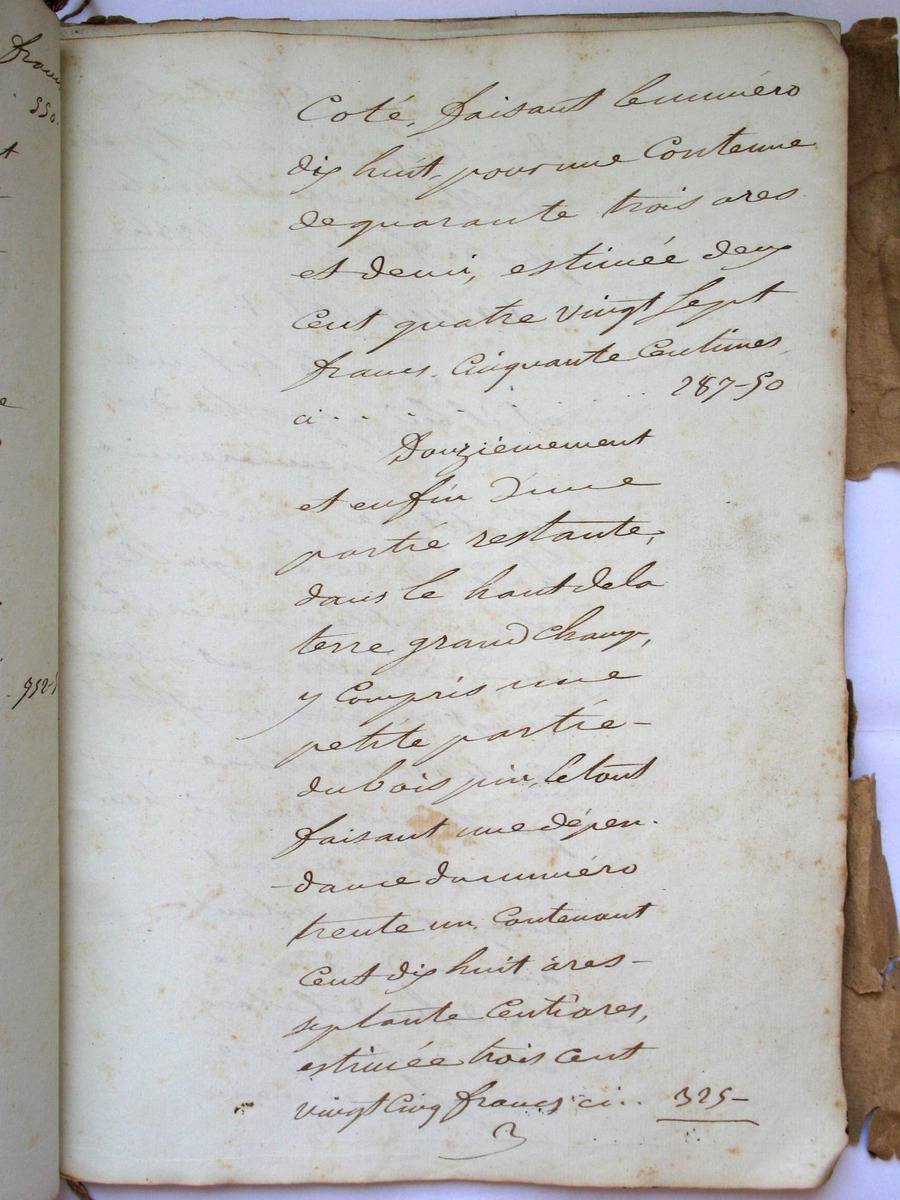 francs
550.
952-
Coté, faisant le numéro
dix huit, pour une Contenue
de quarante trois ares
et demi, estimée deux
Cent quatre vingt Sept
francs, Cinquante Centimes,
ci . . . . . . . . 287-50
Douziemement
et enfin d'une
partie restante,
dans le haut de la
terre grand Champ,
y Compris une
petite partie -
du bois pin, le tout
faisant une dépen.
-dance du numéro
trente un, Contenant
Cent dix huit ares -
septante Centiares,
estimée trois Cent
vingt Cinq francs ci .. 325-